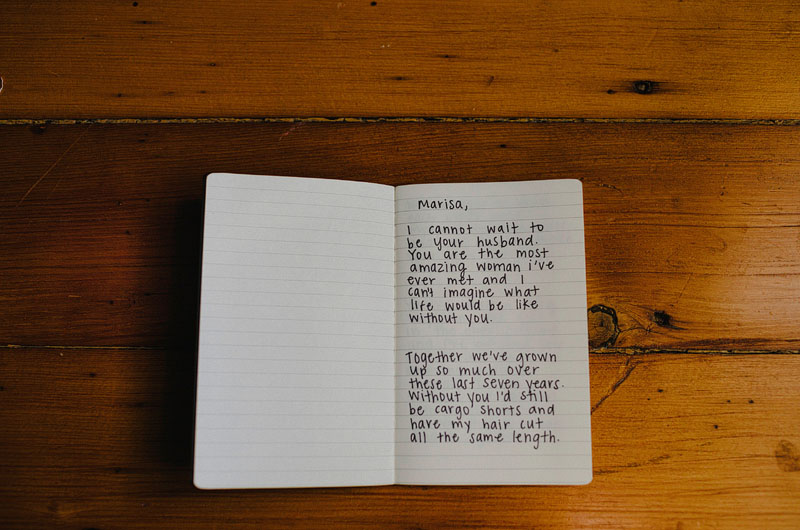 Marisa,
I cannot wait to
be your husband.
You are the most
amazing woman i've
ever met and I
can't imagine what
life would be like
without you.
Together we've grown
up so much over
these last seven years.
Without you I'd still
be cargo shorts and
have my hair cut
all the same length.